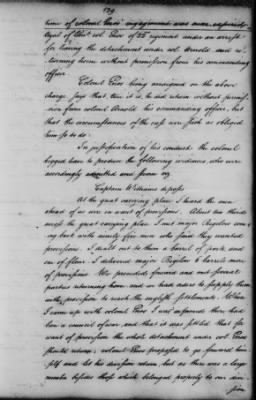 129
time of colonel Enos' engagement was once expired
tryal of Lieut. col. Enos of 22 regiment under an arrest
for leaving the detachment under col. Arnold and re-
turning home without permission from his commanding
officer
Colonel Enos being arraigned on the above
charge, says that true it is, he did return without permis-
sion from colonel Arnold his commanding officer, but
that the circumstances of the case were such as obliged
him so to do.
In justification of his conduct the colonel
begged leave to produce the following evidence who were
accordingly sworn
Captain Williams deposes
At the great carrying place I heard the men
ahead of us were in want of provisions. About two thirds
across the great carrying place I met major Bigelow com-
ing back with ninety five men who said they wanted
provisions. I dealt out to them a barrel of pork and
one of flour. I delivered major Bigelow 6 barrels more
of provisions. We proceeded forward and met several
parties returning home and we had orders to supply them
with provision to reach the english settlements. When
I came up with colonel Enos I was informed there had
been a council of war, and that it was settled that for
want of provision the whole detachment under col. Enos
should return; colonel Enos proposed to go forward him
self and let his division return, but as there was a large
number besides those which belonged properly to our divi-
sion